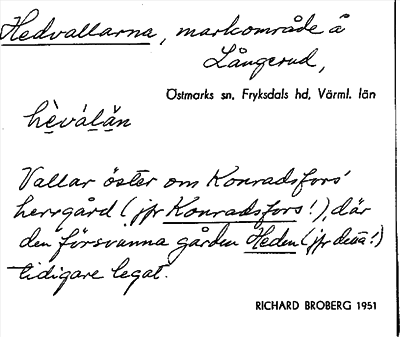 Hedvallarna, markområde å
Långerud,
Östmarks sn, Fryksdals hd, Värml. län
hèválän
Vallar öster om Konradsfors'
herrgård (jfr Konradsfors!), där
den försvunna gården Heden (jfr detta!)
tidigare legat.
RICHARD BROBERG 1951